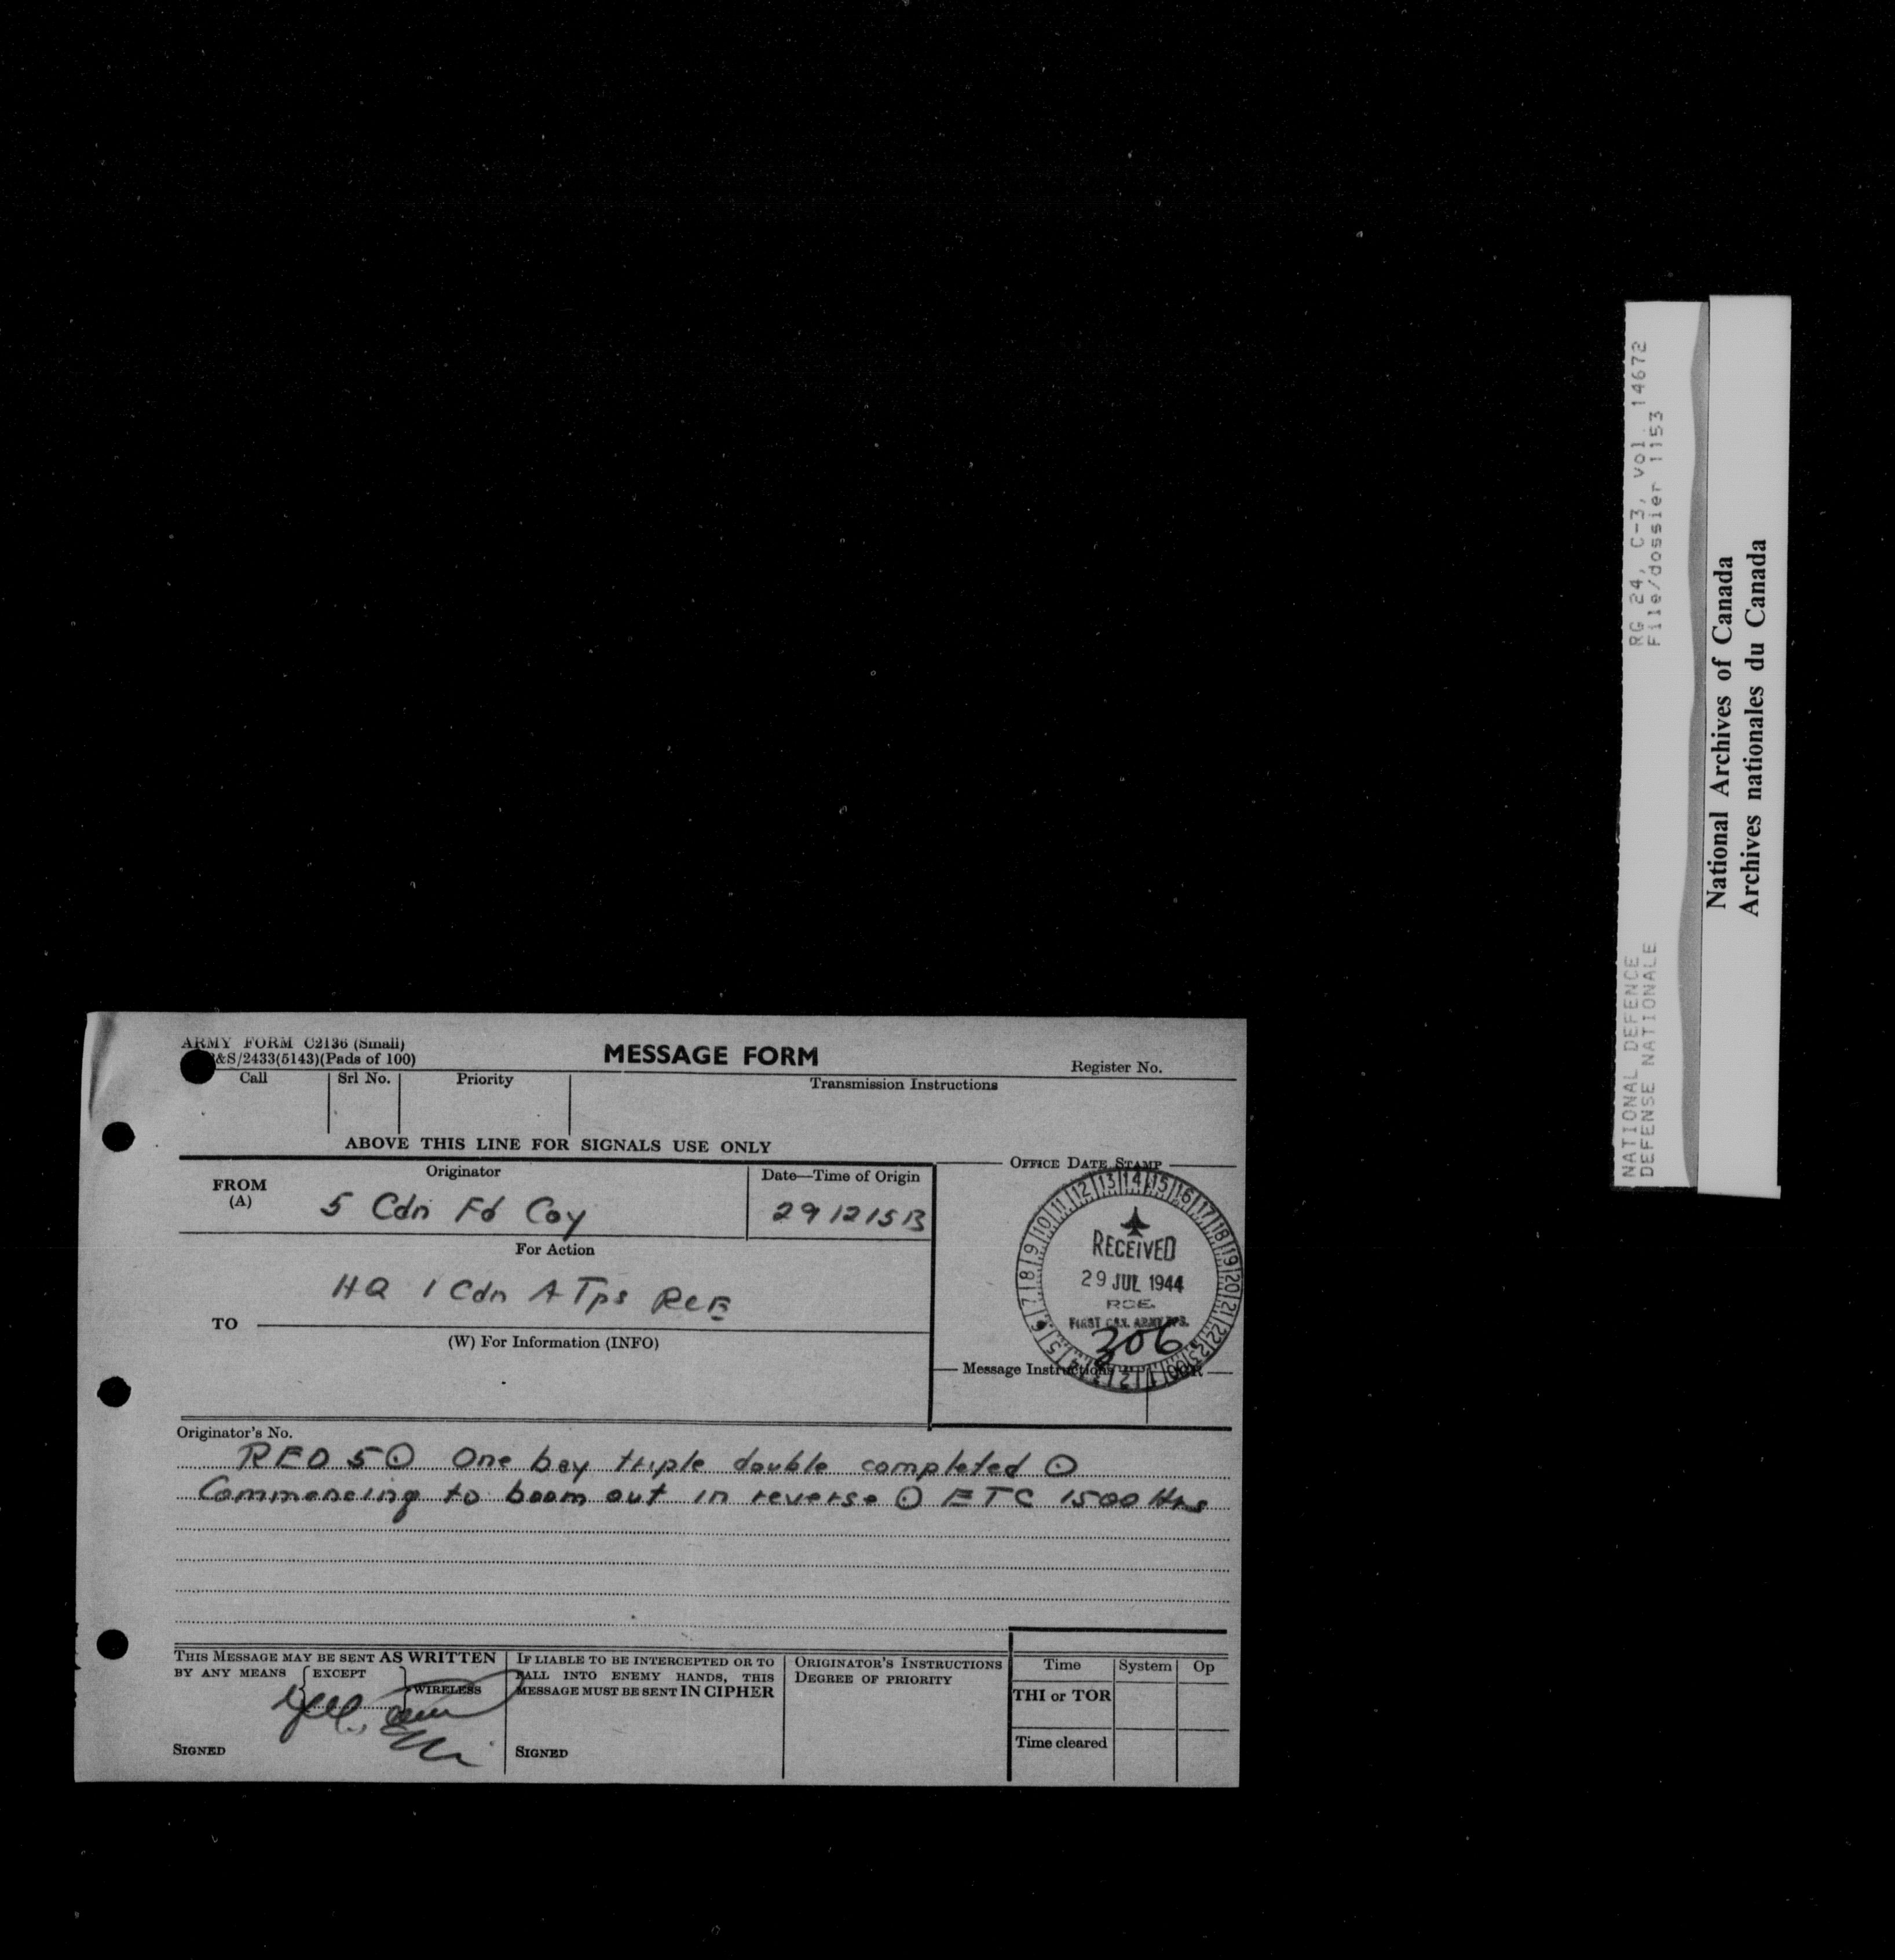 ARMY FORM C2136 (Small)
&S/2433(5143)(Pads of 100)
MESSAGE FORM
Register No.
Call
Srl No.
Priority
Transmission Instructions
ABOVE THIS LINE FOR SIGNALS USE ONLY
FROM
(A)
Originator
5 Cdn Fd Coy
Date—Time of Origin
291215B
OFFICE DATE STAMP
1 2 3 4 5 6 7 8 9 10 11 12 13 14 15 16 17 18 19 20 21 22 23 00
RECEIVED
29 JUL 1944
RCE.
FIRST CAN. ARMY TPS.
306
For Action
HQ 1 Cdn A Tps RCE
TO
(W) For Information (INFO)
Message Instructions
Originator's No.
RED 5 ⊙ One bay triple double completed ⊙
Commencing to boom out in reverse ⊙ ETC 1500 Hrs
THIS MESSAGE MAY BE SENT AS WRITTEN
BY ANY MEANS { EXCEPT }
WIRELESS
SIGNED
IF LIABLE TO BE INTERCEPTED OR TO
FALL INTO ENEMY HANDS, THIS
MESSAGE MUST BE SENT IN CIPHER
SIGNED
ORIGINATOR'S INSTRUCTIONS
DEGREE OF PRIORITY
Time
System
Op
THI or TOR
Time cleared
NATIONAL DEFENCE
DEFENSE NATIONALE
RG 24, C-3, vol. 14672
File/dossier 1153
National Archives of Canada
Archives nationales du Canada